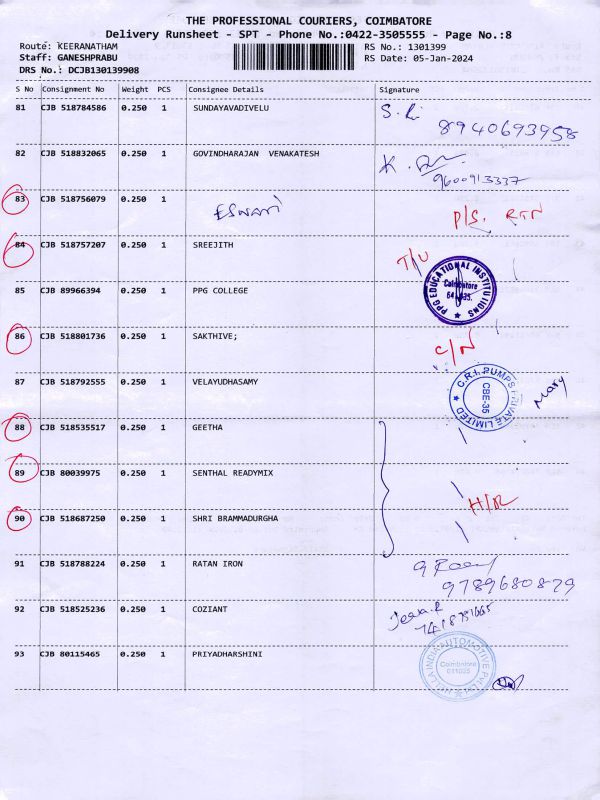 THE PROFESSIONAL COURIERS, COIMBATORE
Delivery Runsheet - SPT - Phone No.:0422-3505555 - Page No.:8
Route: KEERANATHAM RS No.: 1301399
Staff: GANESHPRABU RS Date: 05-Jan-2024
DRS No.: DCJB130139908
S No Consignment No Weight PCS Consignee Details Signature
81 CJB 518784586 0.250 1 SUNDAYAVADIVELU
8940693958
82 CJB 518832065 0.250 1 GOVINDHARAJAN VENAKATESH
9600913337
83 CJB 518756079 0.250 1 ESWARI P/S. RTN
84 CJB 518757207 0.250 1 SREEJITH T/U
85 CJB 89966394 0.250 1 PPG COLLEGE
PPG EDUCATIONAL INSTITUTIONS
Coimbatore
86 CJB 518801736 0.250 1 SAKTHIVE; C/N
87 CJB 518792555 0.250 1 VELAYUDHASAMY
C.R.I. PUMPS PRIVATE LIMITED
CBE-35
Mary
88 CJB 518535517 0.250 1 GEETHA
89 CJB 80039975 0.250 1 SENTHAL READYMIX H/R
90 CJB 518687250 0.250 1 SHRI BRAMMADURGHA
91 CJB 518788224 0.250 1 RATAN IRON
9789680879
92 CJB 518525236 0.250 1 COZIANT
93 CJB 80115465 0.250 1 PRIYADHARSHINI
INDIA AUTOMOTIVE PVT LTD
Coimbatore